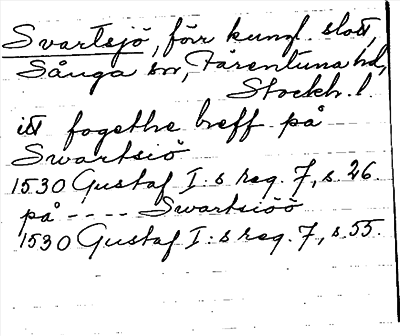 Svartsjö, förr kungl. slott,
Sånga sn, Färentuna hd,
Stockh. l.
itt fogethe breff på
Swartsiö
1530 Gustaf I:s reg. 7, s. 26.
på - - - - Swartsiöö
1530 Gustaf I:s reg. 7, s. 55.